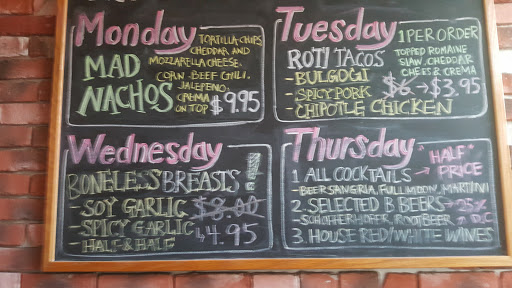 Monday
MAD
NACHOS
TORTILLA CHIPS
CHEDDAR AND
MOZZARELLA CHEESE.
CORN BEEF CHILI.
JALEPENO,
CREMA
ON TOP
$9.95
Tuesday
1 PER ORDER
ROTI TACOS
TOPPED ROMAINE
SLAW, CHEDDAR
CHEES & CREMA
- BULGOGI
- SPICY PORK
- CHIPOTLE CHICKEN
$6 → $3.95
Wednesday
BONELESS BREASTS!
- SOY GARLIC
- SPICY GARLIC
- HALF & HALF
$8.00
↳ 4.95
Thursday
1 ALL COCKTAILS → "HALF" PRICE
- BEER SANGRIA, FULL MOON, MARTINI
2. SELECTED B BEERS → 25%
- SCHOFFERHOFFER, ROOT BEER D.C
3. HOUSE RED/WHITE WINES